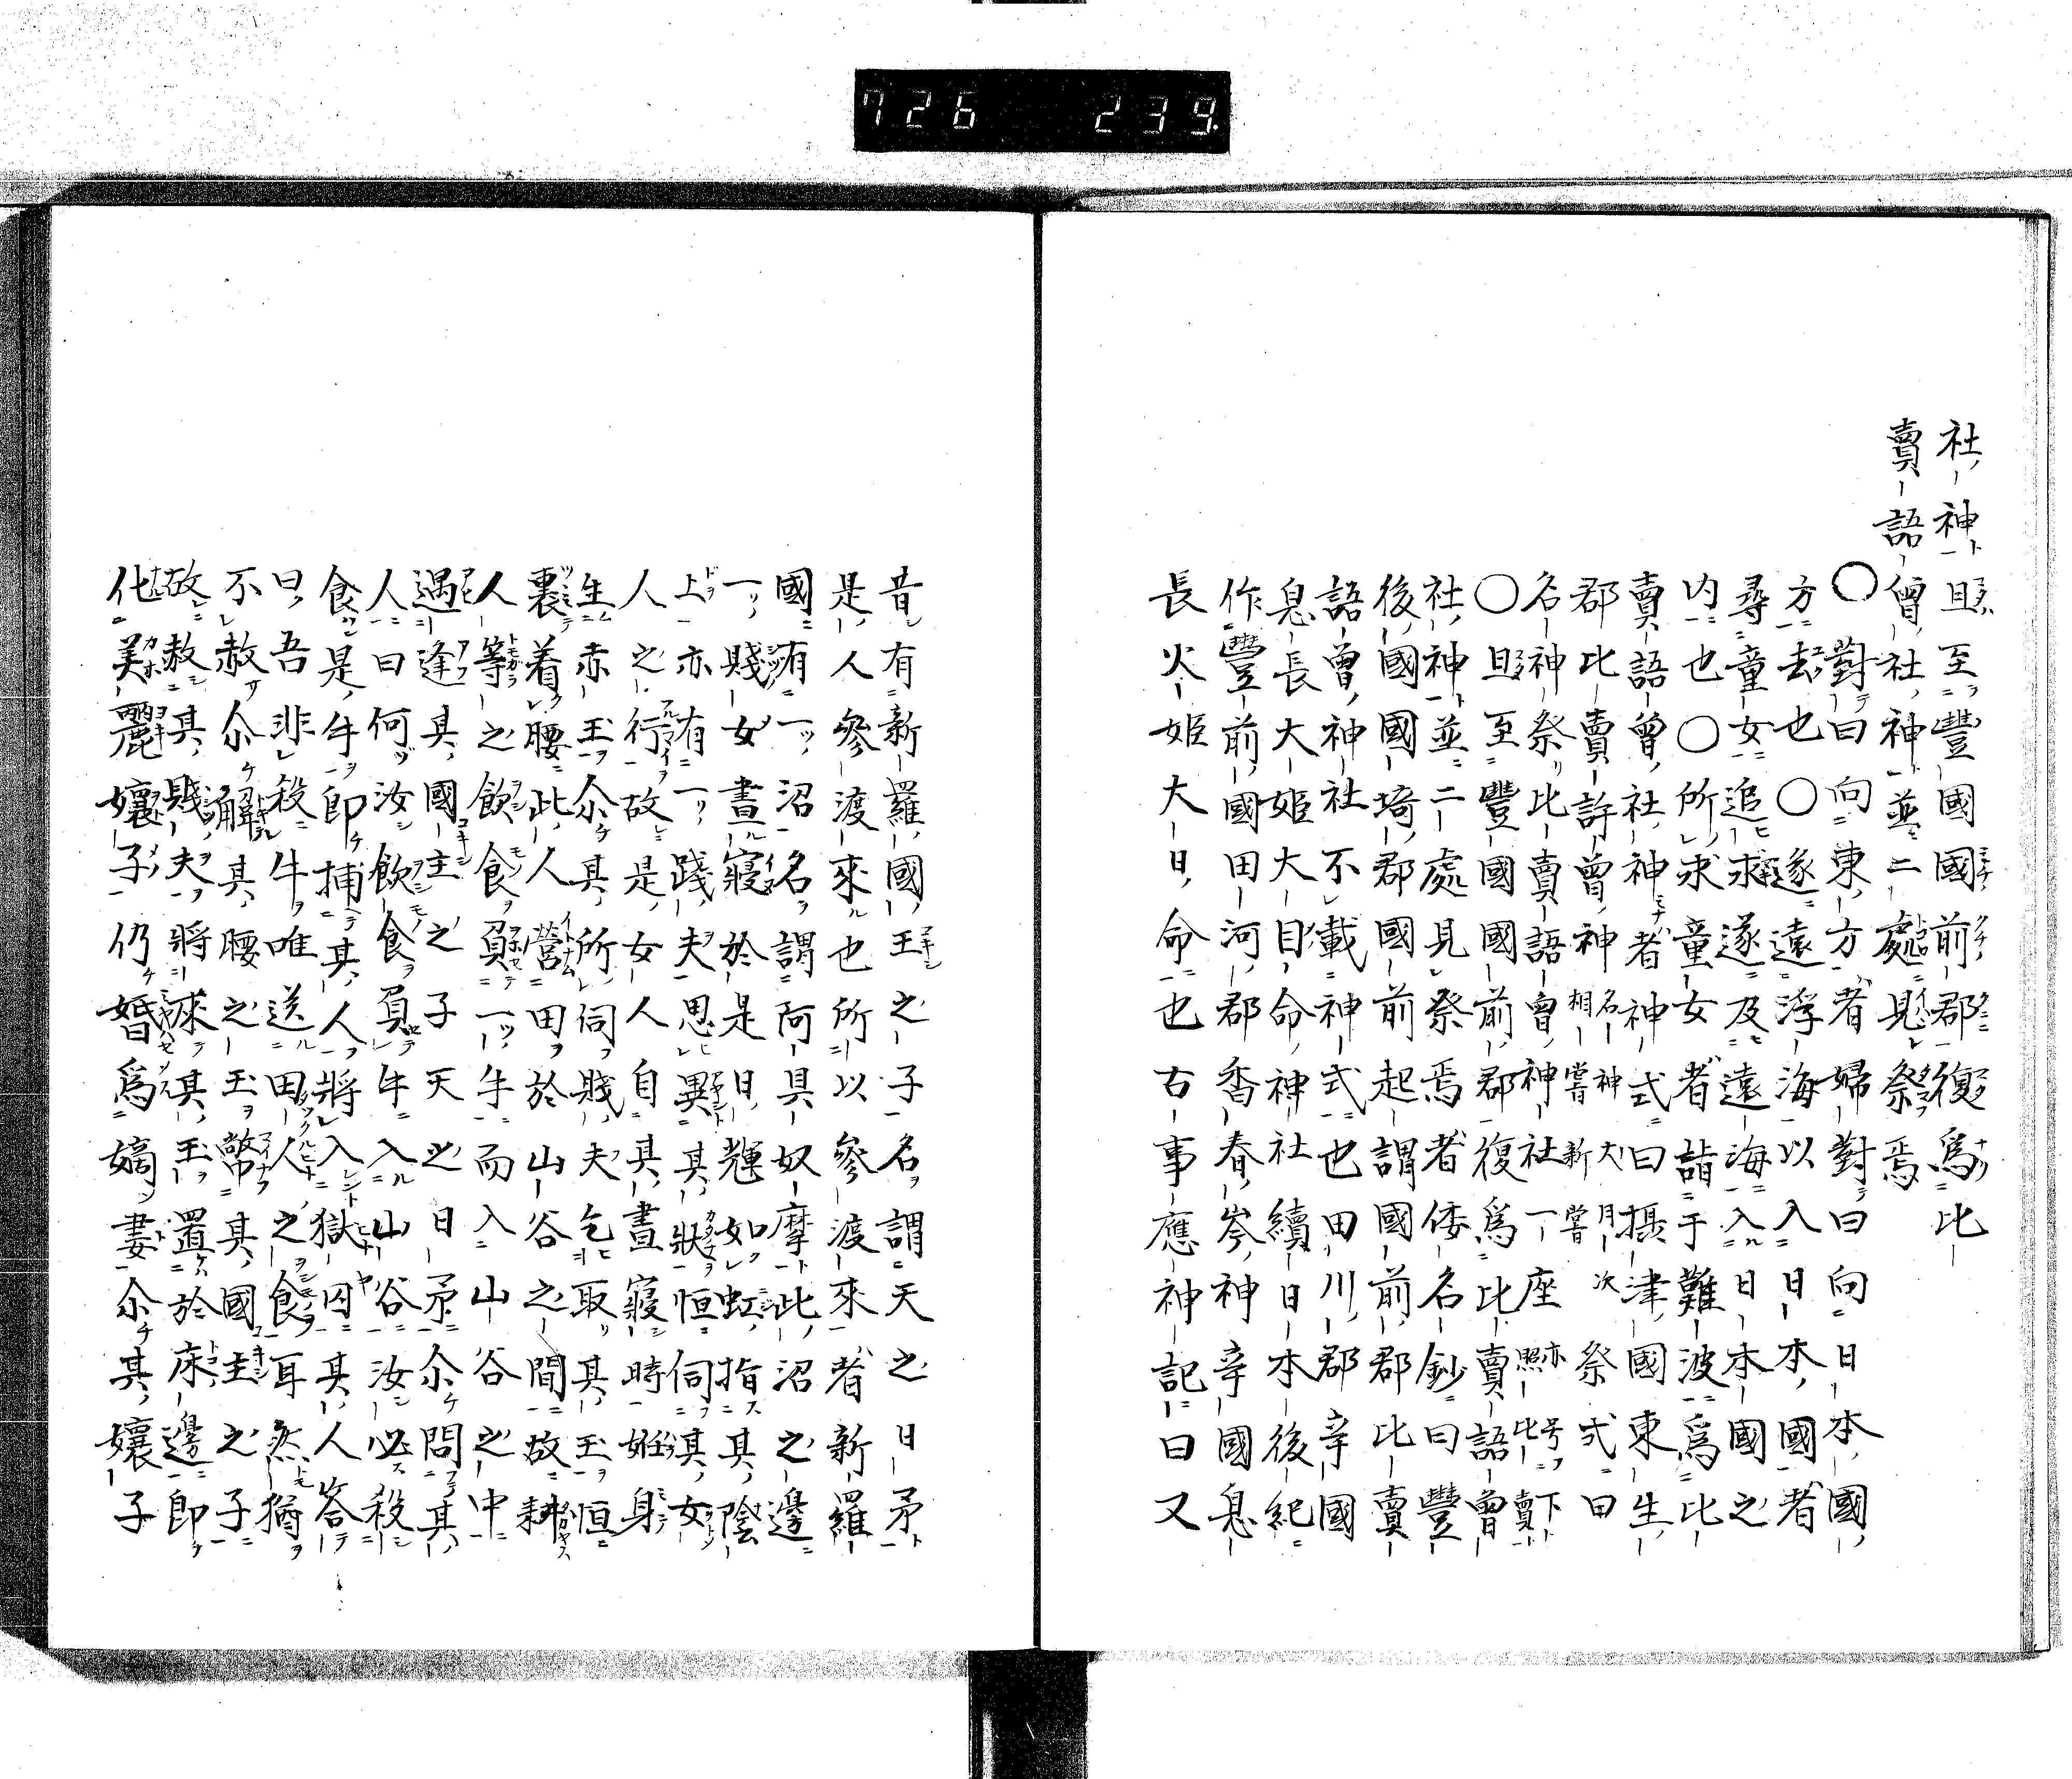 726 239
社神且至豐國國前郡復爲比
賣語曾社神並二處見祭焉
〇對曰向東方者婦對曰向日本國
方去也〇遂遠浮海以入日本國者
尋童女追求遂及遠海入日本國之
内也〇所求童女者詣于難波爲比
賣語曾社神者神式曰攝津國東生
郡比賣許曾神名神大月次相嘗新嘗祭式曰
名神祭比賣語曾神社一座亦号下照比賣
〇且至豐國國前郡復爲比賣語曾
社神並二處見祭焉者倭名鈔曰豐
後國國埼郡國前起謂國前郡比賣
語曾神社不載神式也田川郡辛國
息長大姫大目命神社續日本後紀
作豐前國田河郡香春岑神辛國息
長火姫大日命也古事應神記曰又
昔有新羅國王之子名謂天之日矛
是人參渡來也所以參渡來者新羅
國有一沼名謂阿具奴摩此沼之邊
一賤女晝寢於是日輝如虹指其陰
上亦有一賤夫思異其狀恒伺其女
人之行故是女人自其晝寢時妊身
生赤玉尒其所伺賤夫乞取其玉恒
裹着腰此人營田於山谷之間故耕
人等之飲食負一牛而入山谷之中
遇逢其國主之子天之日矛尒問其
人曰何汝飲食負牛入山谷汝必殺
食是牛即捕其人將入獄囚其人答
曰吾非殺牛唯送田人之食耳然猶
不赦尒解其腰之玉幣其國主之子
故赦其賤夫將來其玉置於床邊即
化美麗孃子仍婚爲嫡妻尒其孃子